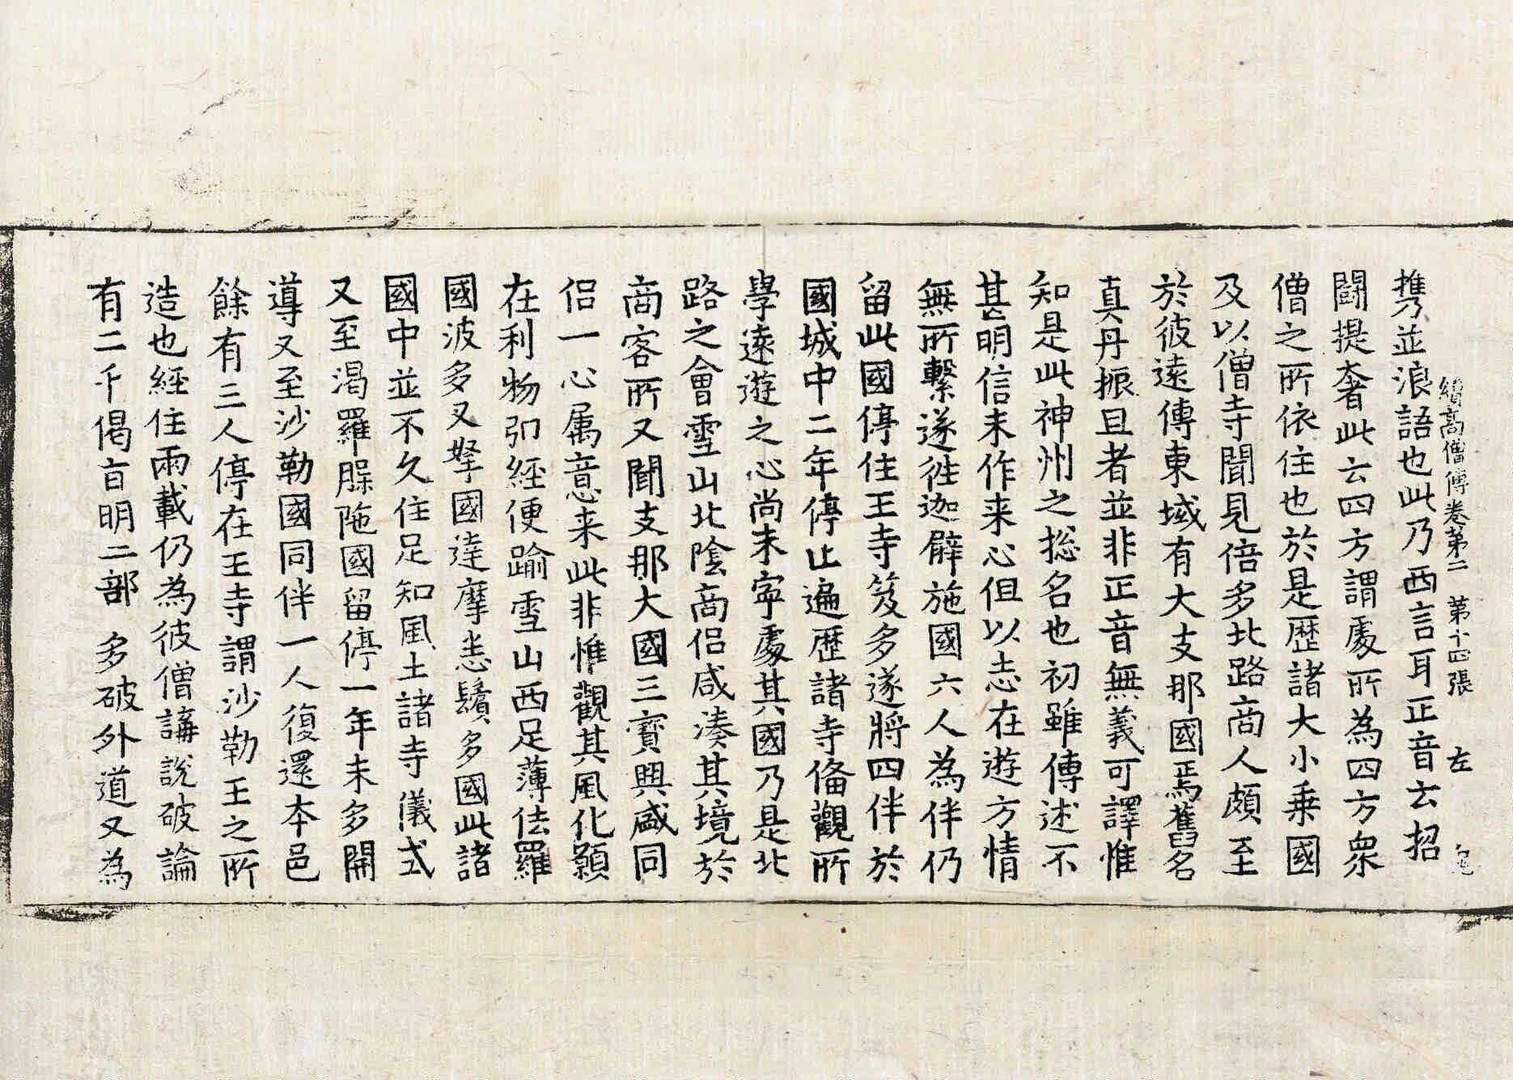 續高僧傳卷第二　第十四張　左
携並浪語也此乃西言耳正音云招
鬪提奢此云四方謂處所為四方衆
僧之所依住也於是歷諸大小乗國
及以僧寺聞見倍多北路商人頗至
於彼遠傳東域有大支那國焉舊名
真丹振旦者並非正音無義可譯惟
知是此神州之捴名也初雖傳述不
甚明信未作来心但以志在遊方情
無所繫遂徃迦臂施國六人為伴仍
留此國停住王寺笈多遂將四伴於
國城中二年停止遍歷諸寺俻觀所
學遠遊之心尚未寧處其國乃是北
路之會雪山北陰商侣咸湊其境於
商客所又聞支那大國三寳興盛同
侣一心属意来此非惟觀其風化願
在利物弘經便踰雪山西足薄佉羅
國波多叉拏國達摩悉鬚多國此諸
國中並不久住足知風土諸寺儀式
又至渴羅臊陁國留停一年未多開
導又至沙勒國同伴一人復還本邑
餘有三人停在王寺謂沙勒王之所
造也經住兩載仍為彼僧講說破論
有二千偈旨明二部多破外道又為